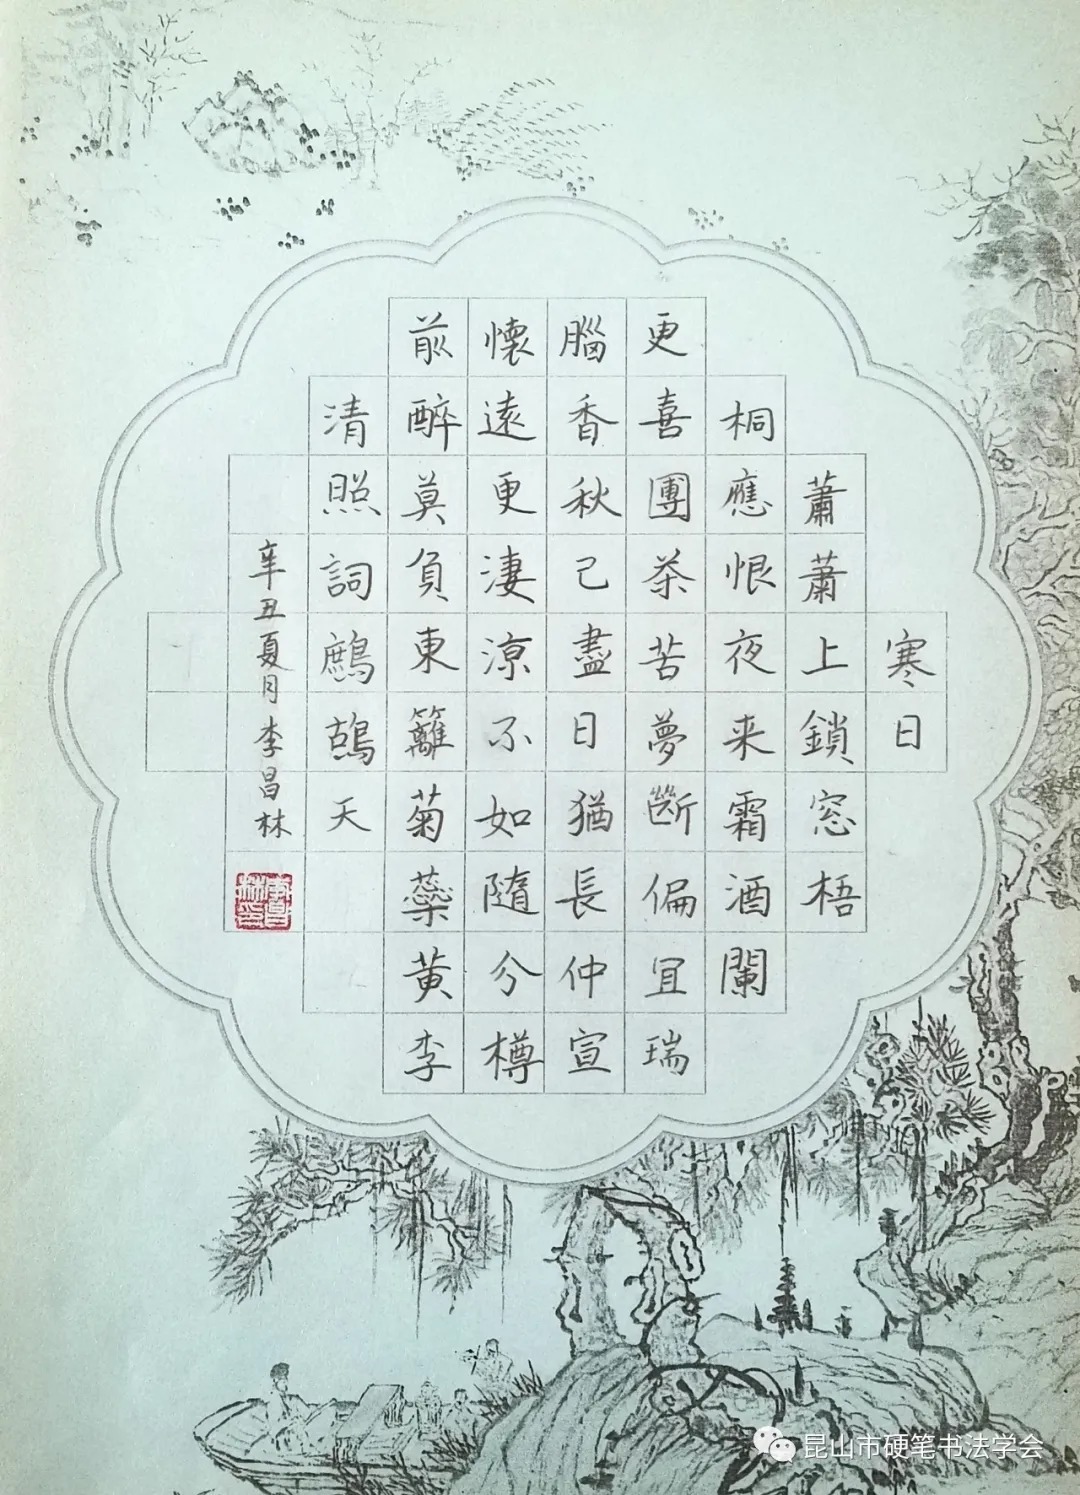 寒日
蕭蕭上鎖窓梧
桐應恨夜来霜酒闌
更喜團茶苦夢斷偏宜瑞
腦香秋已盡日猶長仲宣
懷遠更淒涼不如隨分樽
前醉莫負東籬菊蘂黄李
清照詞鷓鴣天
辛丑夏月李昌林
李昌林印
昆山市硬笔书法学会